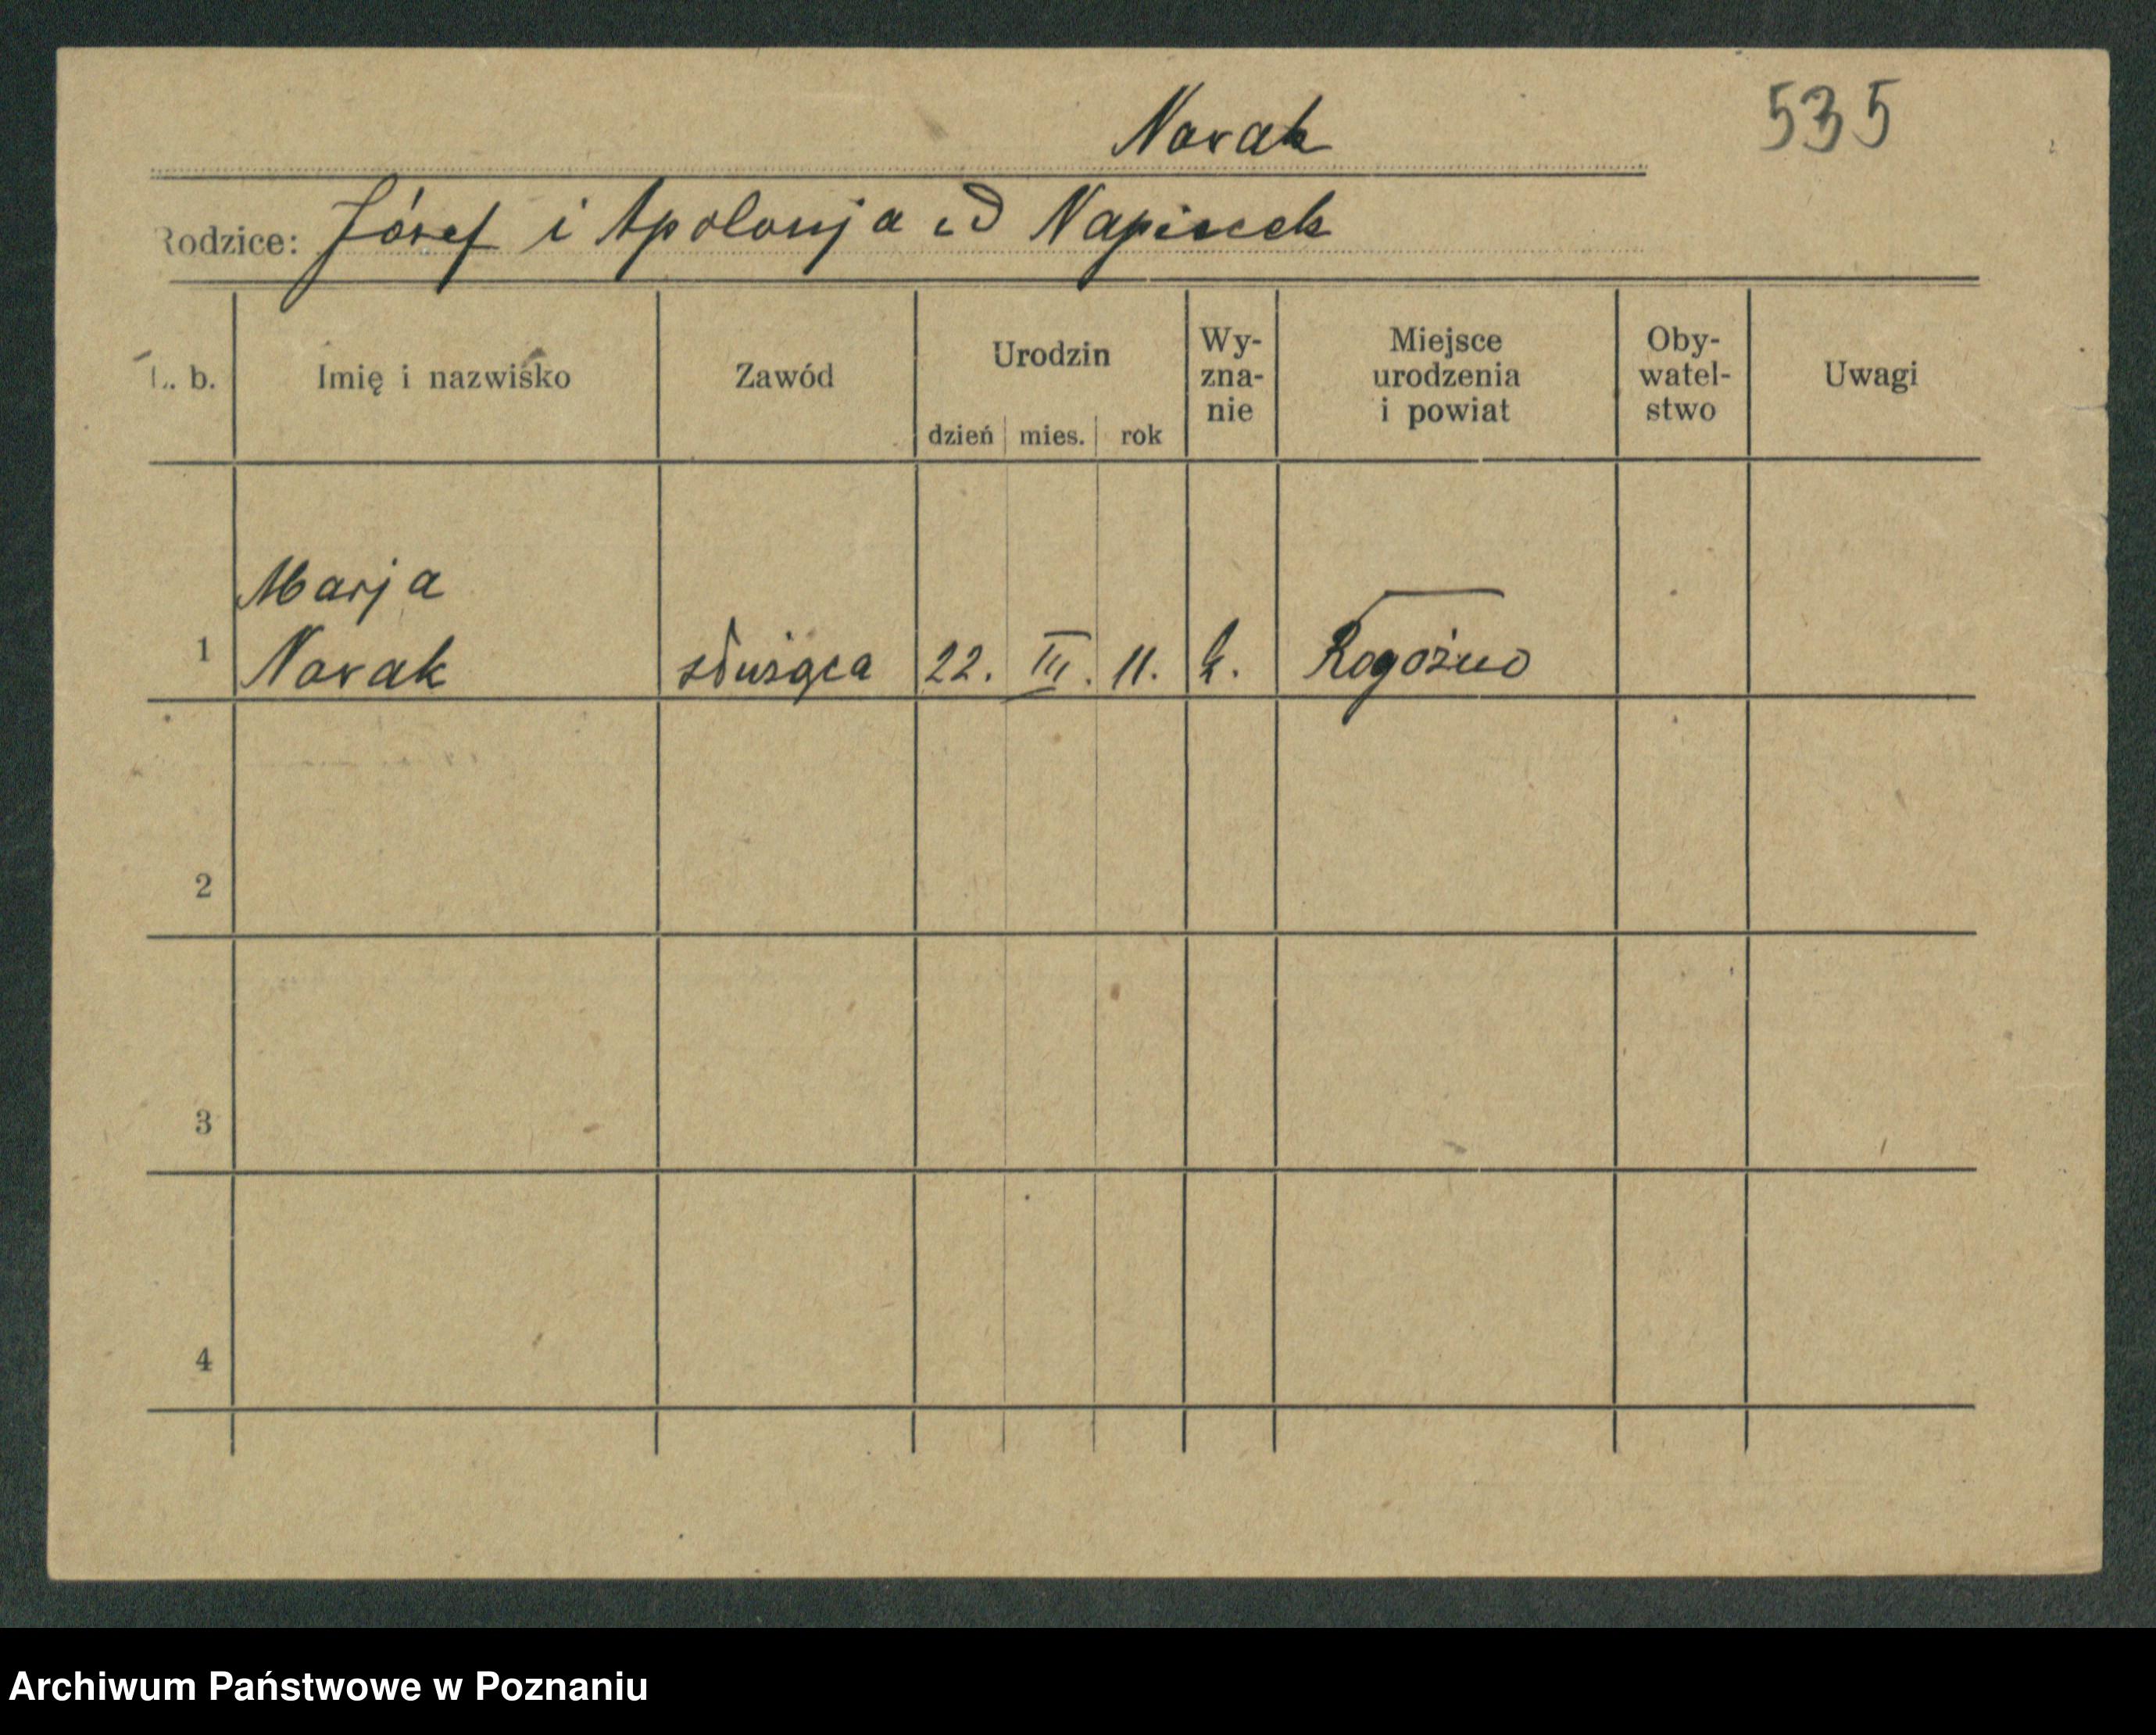 Novak
535
Rodzice: Józef i Apolonja zd Napieek
L. b.
Imię i nazwisko
Zawód
Urodzin
dzień mies. rok
Wy-
zna-
nie
Miejsce
urodzenia
i powiat
Oby-
watel-
stwo
Uwagi
Marja
1 Novak służąca 22. III. 11. k. Rogoźno
2
3
4
Archiwum Państwowe w Poznaniu